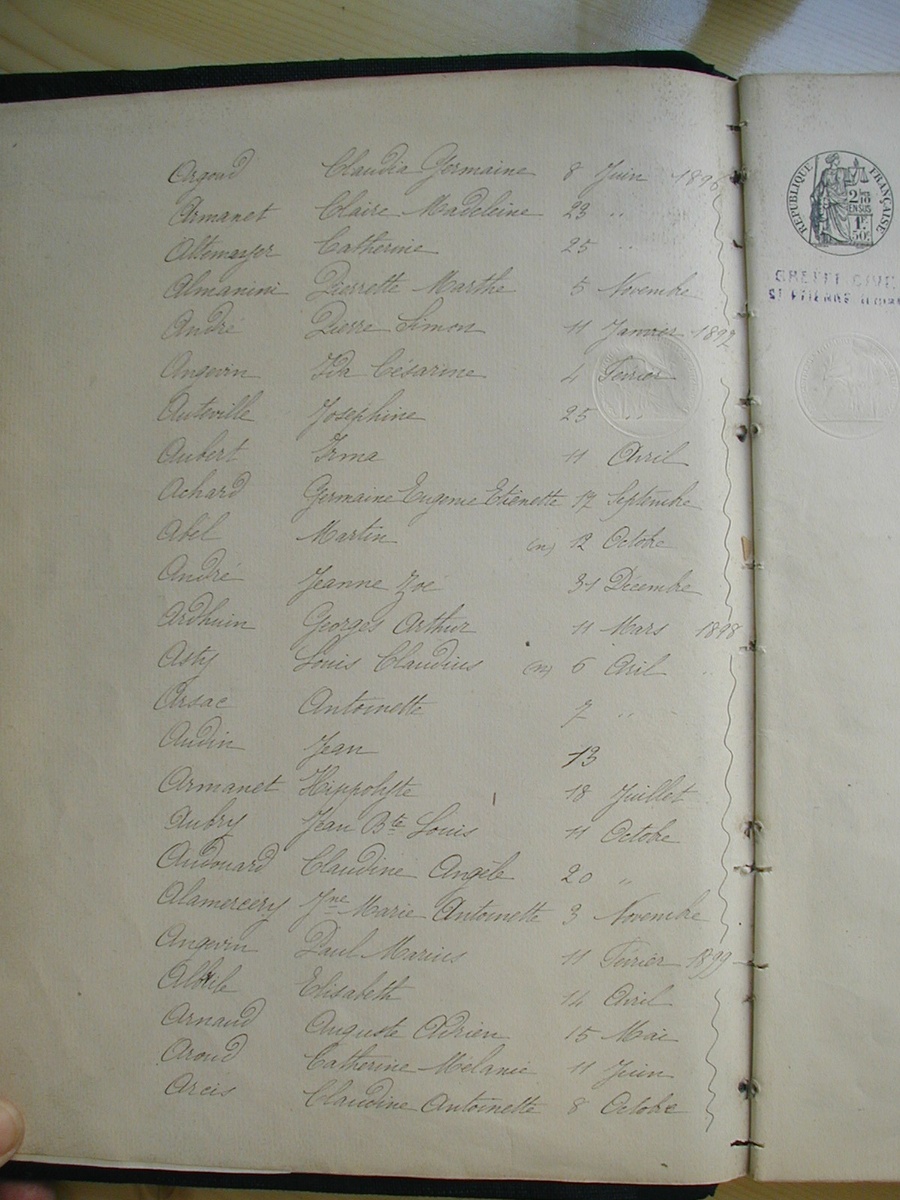 Argoud Claudia Germaine 8 Juin 1896
Armanet Claire Madeleine 23 "
Altemayer Catherine 25 "
Almanini Pierrette Marthe 5 Novembre
André Pierre Simon 11 Janvier 1897
Angevin Ida Césarine 4 Février
Auteville Joséphine 25 "
Aubert Irma 11 Avril
Achard Germaine Eugenie Etiénette 17 Septembre
Abel Martin (n) 12 Octobre
André Jeanne Zoé 31 Décembre
Ardhuin Georges Arthur 11 Mars 1898
Asty Louis Claudius (n) 6 Avril "
Arsac Antoinette 7 "
Audin Jean 13
Armanet Hippolyte 18 Juillet
Aubry Jean Bte Louis 11 Octobre
Audouard Claudine Angèle 20 "
Alamercery Jne Marie Antoinette 3 Novembre
Angevin Paul Marius 11 Février 1899
Elisabeth 14 Avril
Arnaud Auguste Adrien 15 Mai
Aroud Catherine Mélanie 11 Juin
Arcis Claudine Antoinette 8 Octobre
RÉPUBLIQUE FRANÇAISE
2/10 EN SUS
1F 50c
GREFFE CIVIL
ST ETIENNE